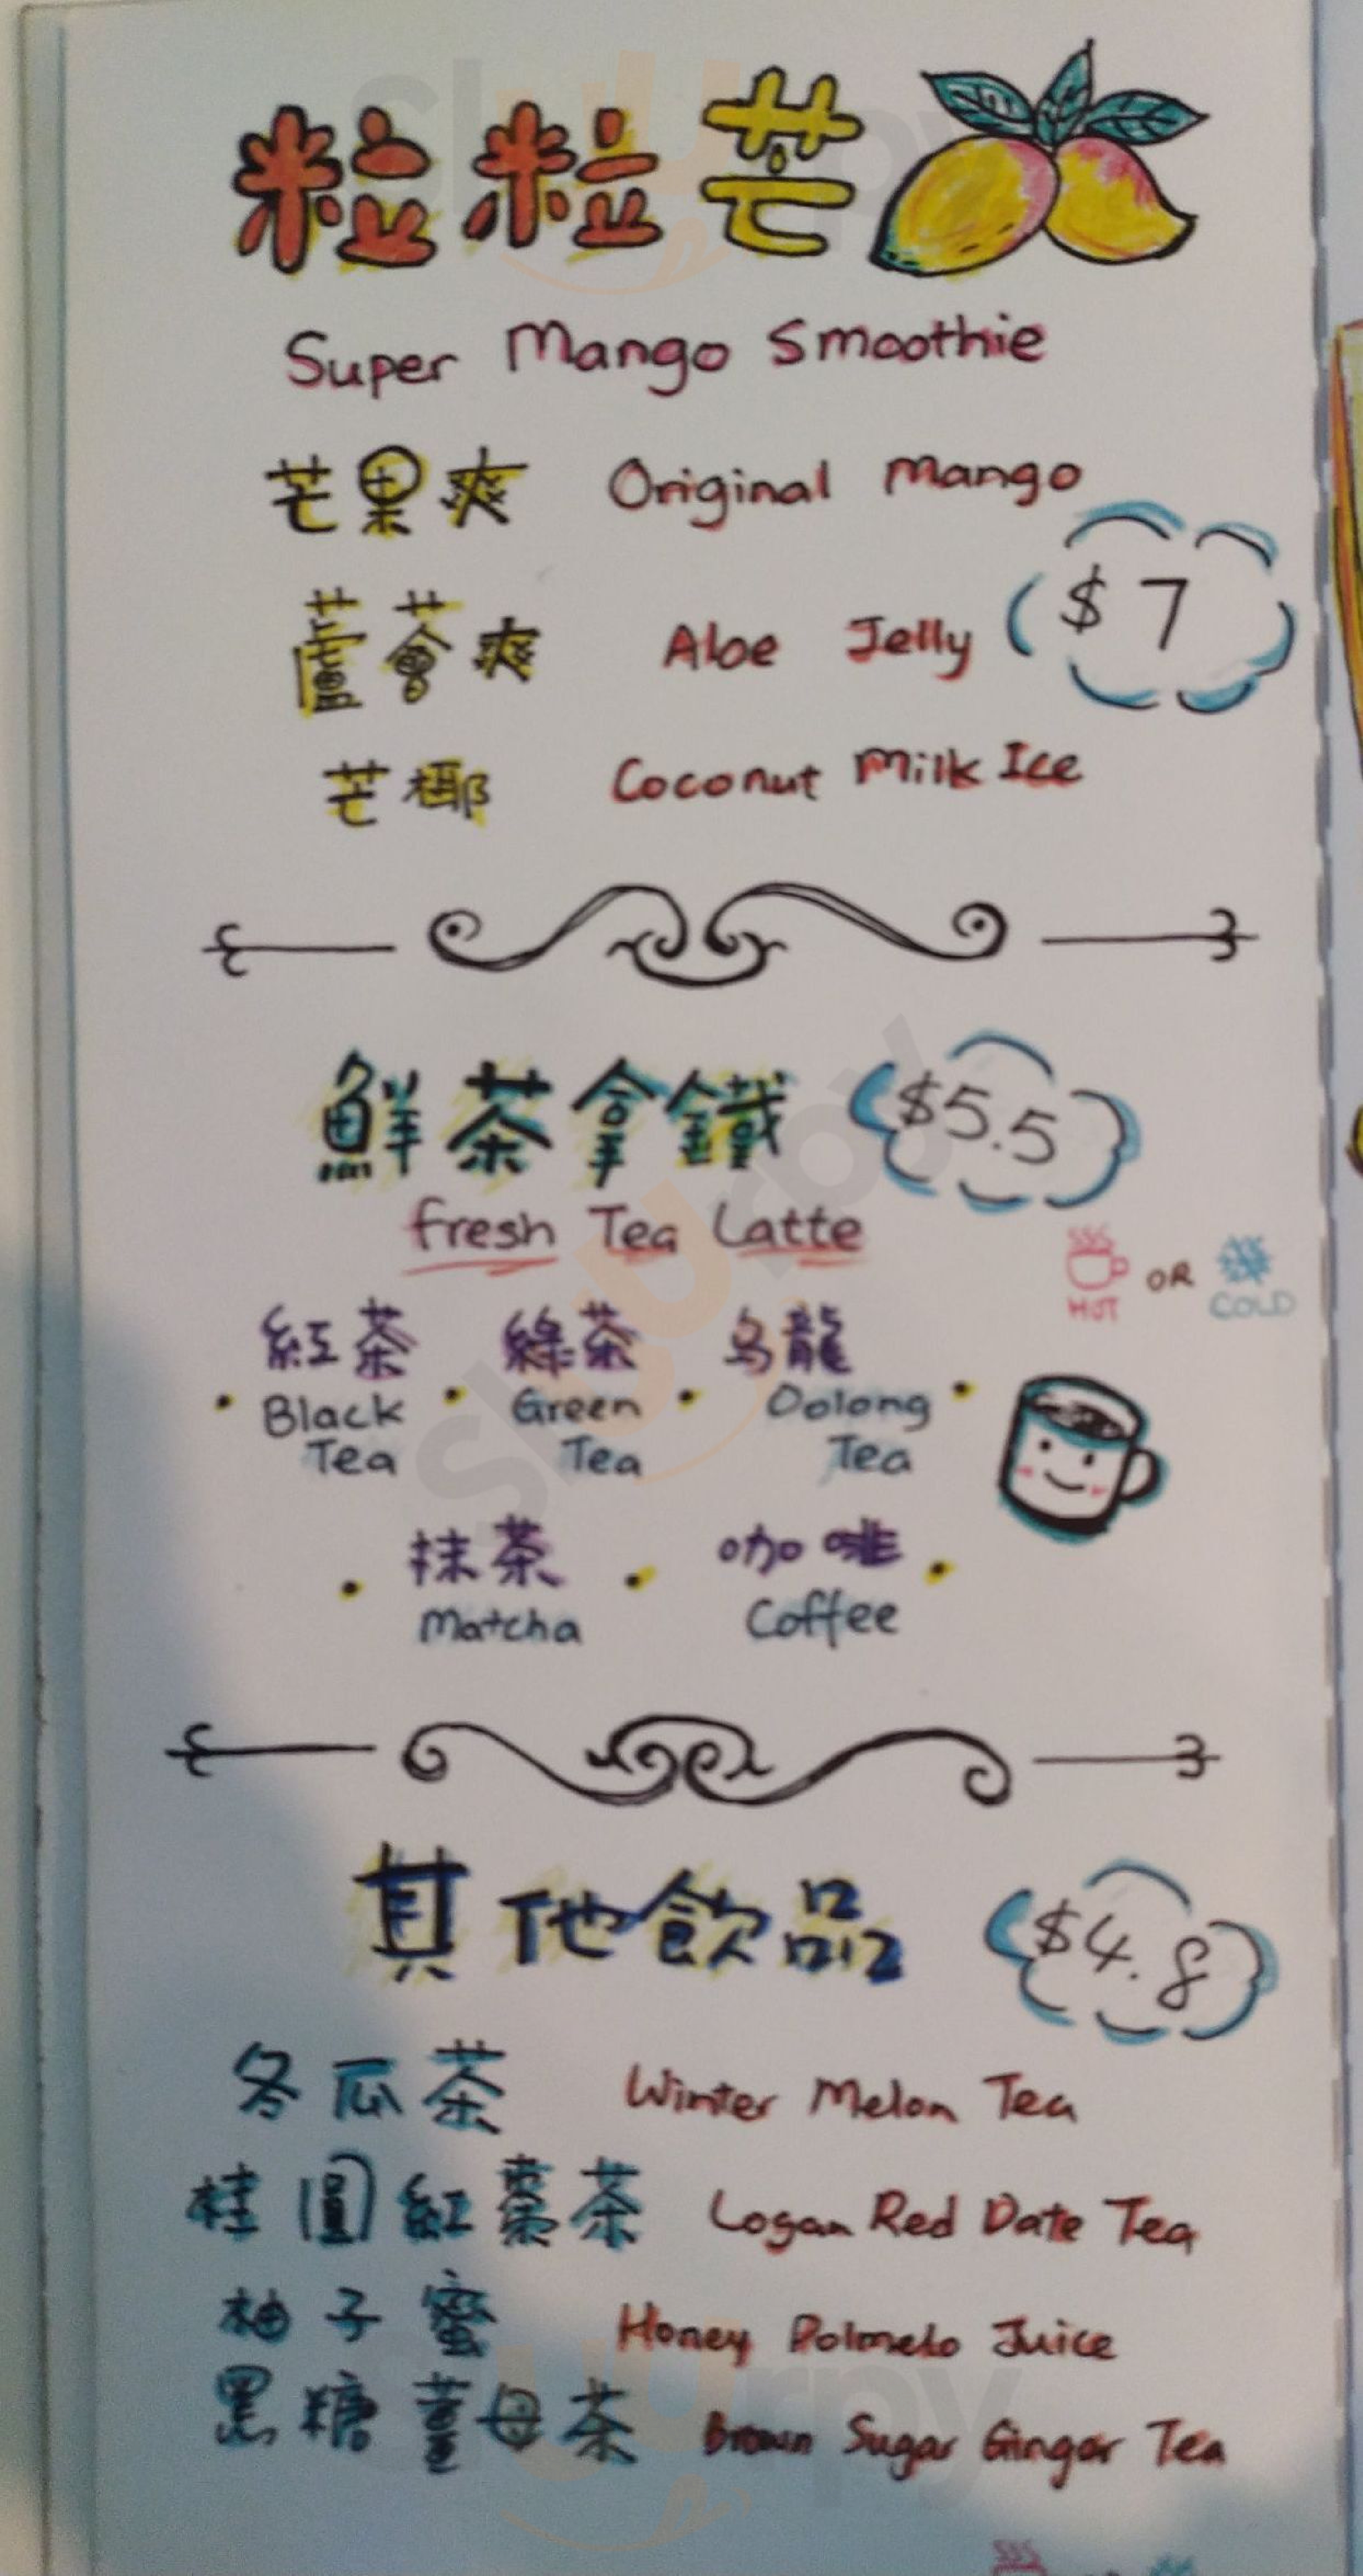 粒粒芒
Super Mango Smoothie
芒果爽 Original Mango
$7
蘆薈爽 Aloe Jelly
芒椰 Coconut Milk Ice
鮮茶拿鐵 $5.5
Fresh Tea Latte
HOT OR COLD
紅茶 綠茶 烏龍
Black Green Oolong
Tea Tea Tea
抹茶 咖啡
Matcha Coffee
其他飲品 $4.8
冬瓜茶 Winter Melon Tea
桂圓紅棗茶 Logan Red Date Tea
柚子蜜 Honey Polmelo Juice
黑糖薑母茶 Brown Sugar Ginger Tea
slurpy
slurpy
slurpy